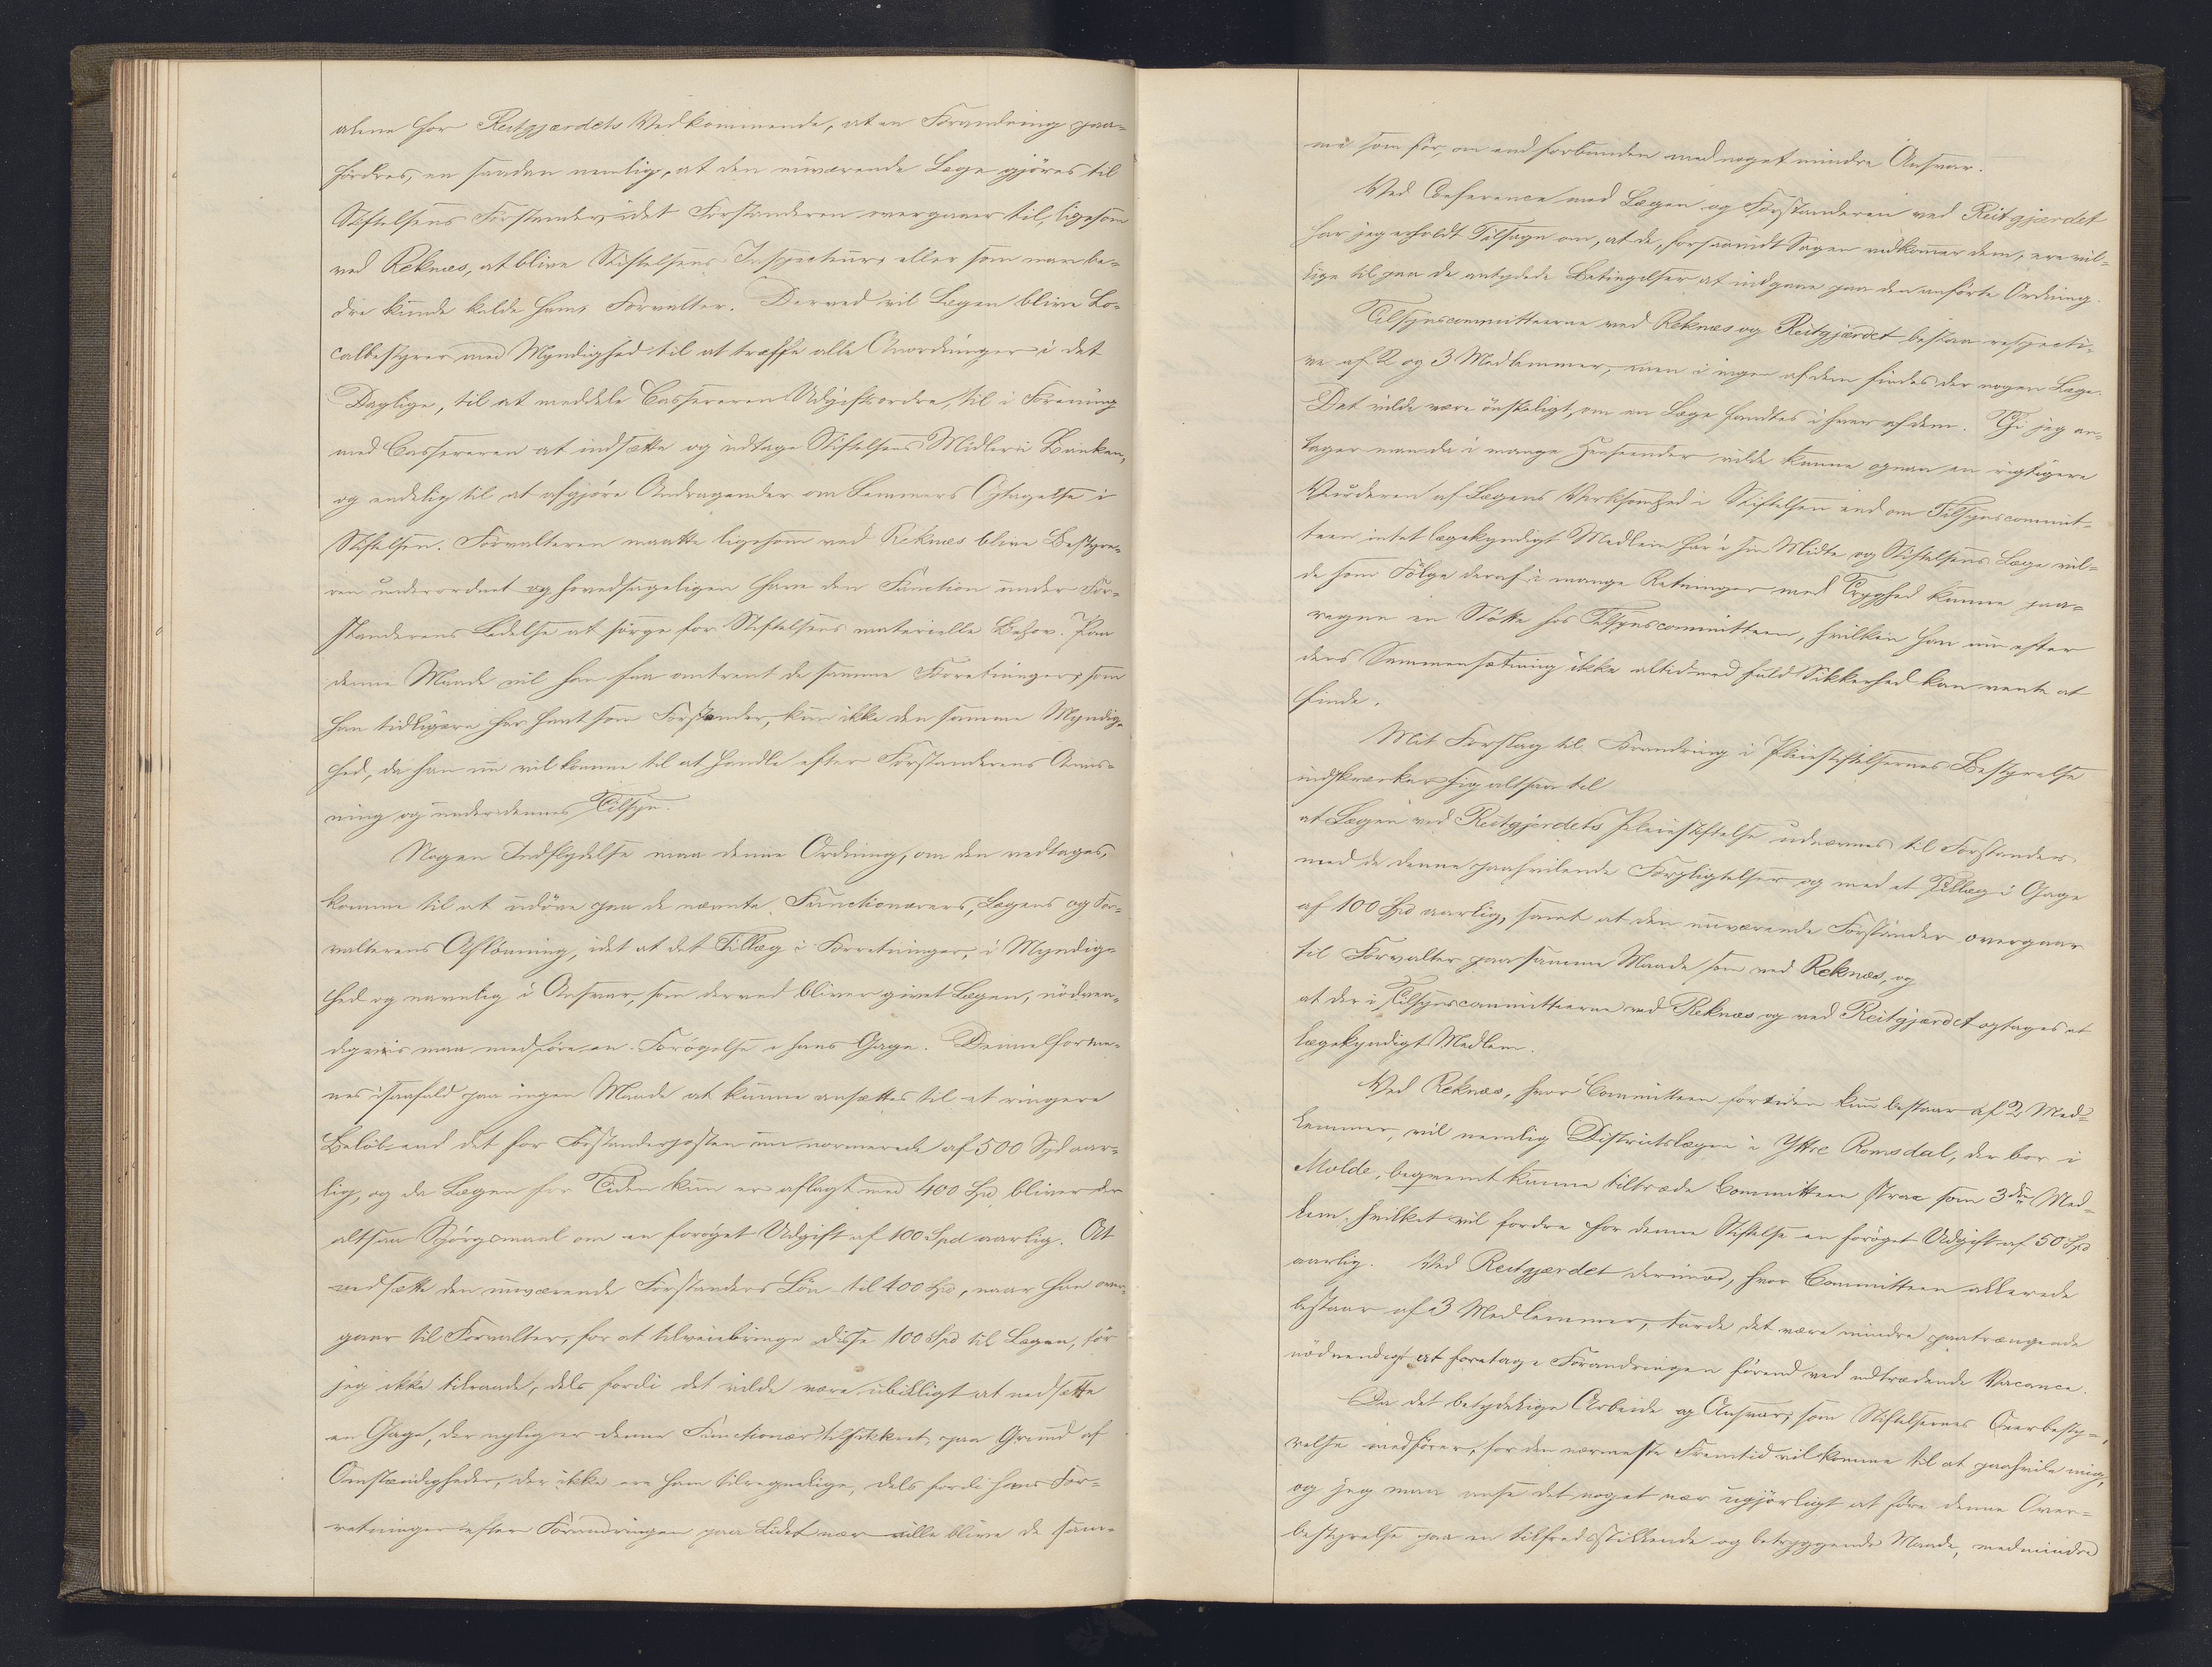 alene for Reitgjærdets Vedkommende, at en Forandring paa-
fordres, en saadan nemlig, at den nuværende Læge gjöres til
Stiftelsens Forstander, idet Forstanderen overgaaer til, ligesom
ved Reknæs, at blive Stiftelsens Inspecteur, eller som man be-
dre kunde kalde ham, Forvalter. Derved vil Lægen blive Lo-
calbestyrer med Myndighed til at træffe alle Anordninger i det
Daglige, til at meddele Cassereren Udgiftsordre, til i Forening
med Cassereren at indsætte og udtage Stiftelsens Midler i Banken,
og endelig til at afgjöre Andragender om Lemmers Optagelse i
Stiftelsen. Forvalteren maatte ligesom ved Reknæs blive Bestyre-
ren underordnet og hovedsageligen have den Function under For-
standerens Ledelse at sörge for Stiftelsens materielle Behov. Paa
denne Maade vil han faa omtrent de samme Forretninger, som
han tidligere har havt som Forstander, kun ikke den samme Myndig-
hed, da han nu vil komme til at handle efter Forstanderens Anvis-
ning og under dennes Tilsyn.
Nogen Indflydelse maa denne Ordning, om den vedtages,
komme til at udöve paa de nævnte Functionærers, Lægens og For-
valterens Aflönning, idet at det Tillæg i Forretninger, i Myndig-
hed og navnlig i Ansvar, som derved bliver givet Lægen, nödven-
digviis maa medföre en Forögelse i hans Gage. Denne forme-
nes isaafald paa ingen Maade at kunne ansættes til et ringere
Belöb end det for Bestanderposten nu normerede af 500 Spd aar-
lig, og da Lægen for Tiden kun er aflagt med 400 Spd, bliver der
altsaa Spörgsmaal om en foröget Udgift af 100 Spd aarlig. At
nedsætte den nuværende Forstanders Lön til 400 Spd, naar han over-
gaar til Forvalter, for at tilveiebringe disse 100 Spd til Lægen, tör
jeg ikke tilraade, dels fordi det vilde være ubilligt at nedsætte
en Gage, der nylig er denne Functionær tilsikkret, paa Grund af
Omstændigheder, der ikke ere ham tilregnelige, dels fordi hans For-
retninger efter Forandringen paa Lidet nær ville blive de sam-
me som för, om end forbunden med noget mindre Ansvar.
Ved Conference med Lægen og Forstanderen ved Reitgjærdet
har jeg erholdt Tilsagn om, at de, forsaavidt Sagen vedkommer dem, ere vil-
lige til paa de antydede Betingelser at indgaae paa den anförte Ordning.
Tilsynscommitteerne ved Reknæs og Reitgjærdet bestaa respecti-
ve af 2 og 3 Medlemmer, men i ingen af dem findes der nogen Læge.
Det vilde være önskeligt, om en Læge fandtes i hver af dem. Thi jeg an-
tager man da i mange Henseender vilde kunne opnaa en rigtigere
Vurderen af Lægens Virksomhed i Stiftelsen end om Tilsynscommit-
teen intet lægekyndigt Medlem har i sin Midte og Stiftelsens Læge vil-
de som Fölge deraf i mange Retninger med Tryghed kunne paa-
regne en Stötte hos Tilsynscommitteen, hvilken han nu efter
dens Sammensætning ikke altid med fuld Sikkerhed kan vente at
finde.
Mit Forslag til Forandring i Pleiestiftelsernes Bestyrelse
indskrænker sig altsaa til
at Lægen ved Reitgjerdets Pleiestiftelse udnævnes til Forstander
med de denne paahvilende Forpligtelser og med et Tillæg i Gage
af 100 Spd aarlig, samt at den nuværende Forstander overgaar
til Forvalter paa samme Maade som ved Reknæs, og
at der i Tilsynscommitteerne ved Reknæs og ved Reitgjærdet optages et
lægekyndigt Medlem.
Ved Reknæs, hvor Committeen fortiden kun bestaar af 2 Med-
lemmer, vil nemlig Districtslægen i Yttre Romsdal, der bor i
Molde, beqvemt kunne tiltræde Committeen strax som 3die Med-
lem, hvilket vil fordre for denne Stiftelse en foröget Udgift af 50 Spd
aarlig. Ved Reitgjerdet derimod, hvor Committeen allerede
bestaar af 3 Medlemmer, turde det være mindre paatrængende
nödvendigt at foretage Forandringen förend ved indtrædende Vacance.
Da det betydelige Arbeide og Ansvar, som Stiftelsernes Overbesty-
relse medförer, for den nærmeste Fremtid vil komme til at paahvile mig,
og jeg maa anse det noget nær ugjörligt at före denne Over-
bestyrelse paa en tilfredsstillende og betryggende Maade, medmindre